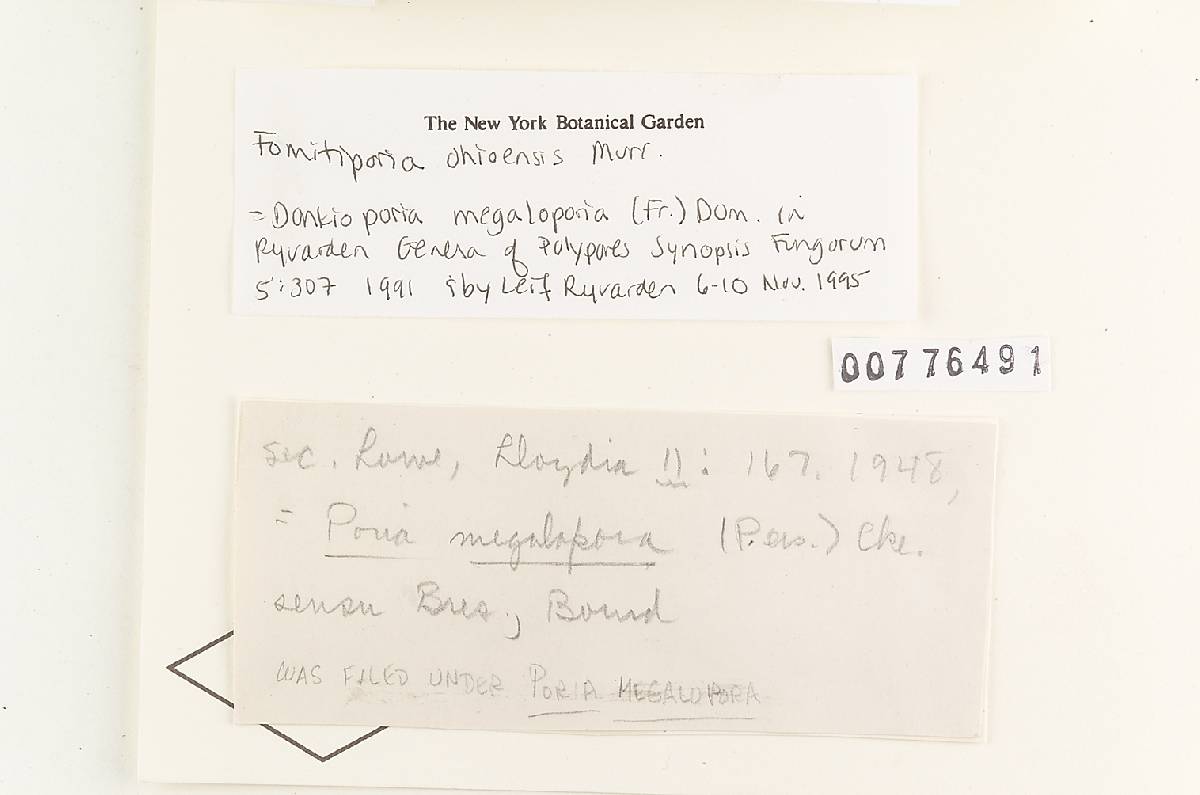 The New York Botanical Garden
Fomitiporia ohioensis Murr.
= Donkioporia megaloporia (Fr.) Dom. in
Ryvarden Genera of Polypores Synopsis Fungorum
5:307 1991 & by Leif Ryvarden 6-10 Nov. 1995
00776491
sec. Lowe, Lloydia 11: 167. 1948,
= Poria megalopora (Pers.) Cke.
sensu Bres., Bourd
WAS FILED UNDER PORIA MEGALOPORA